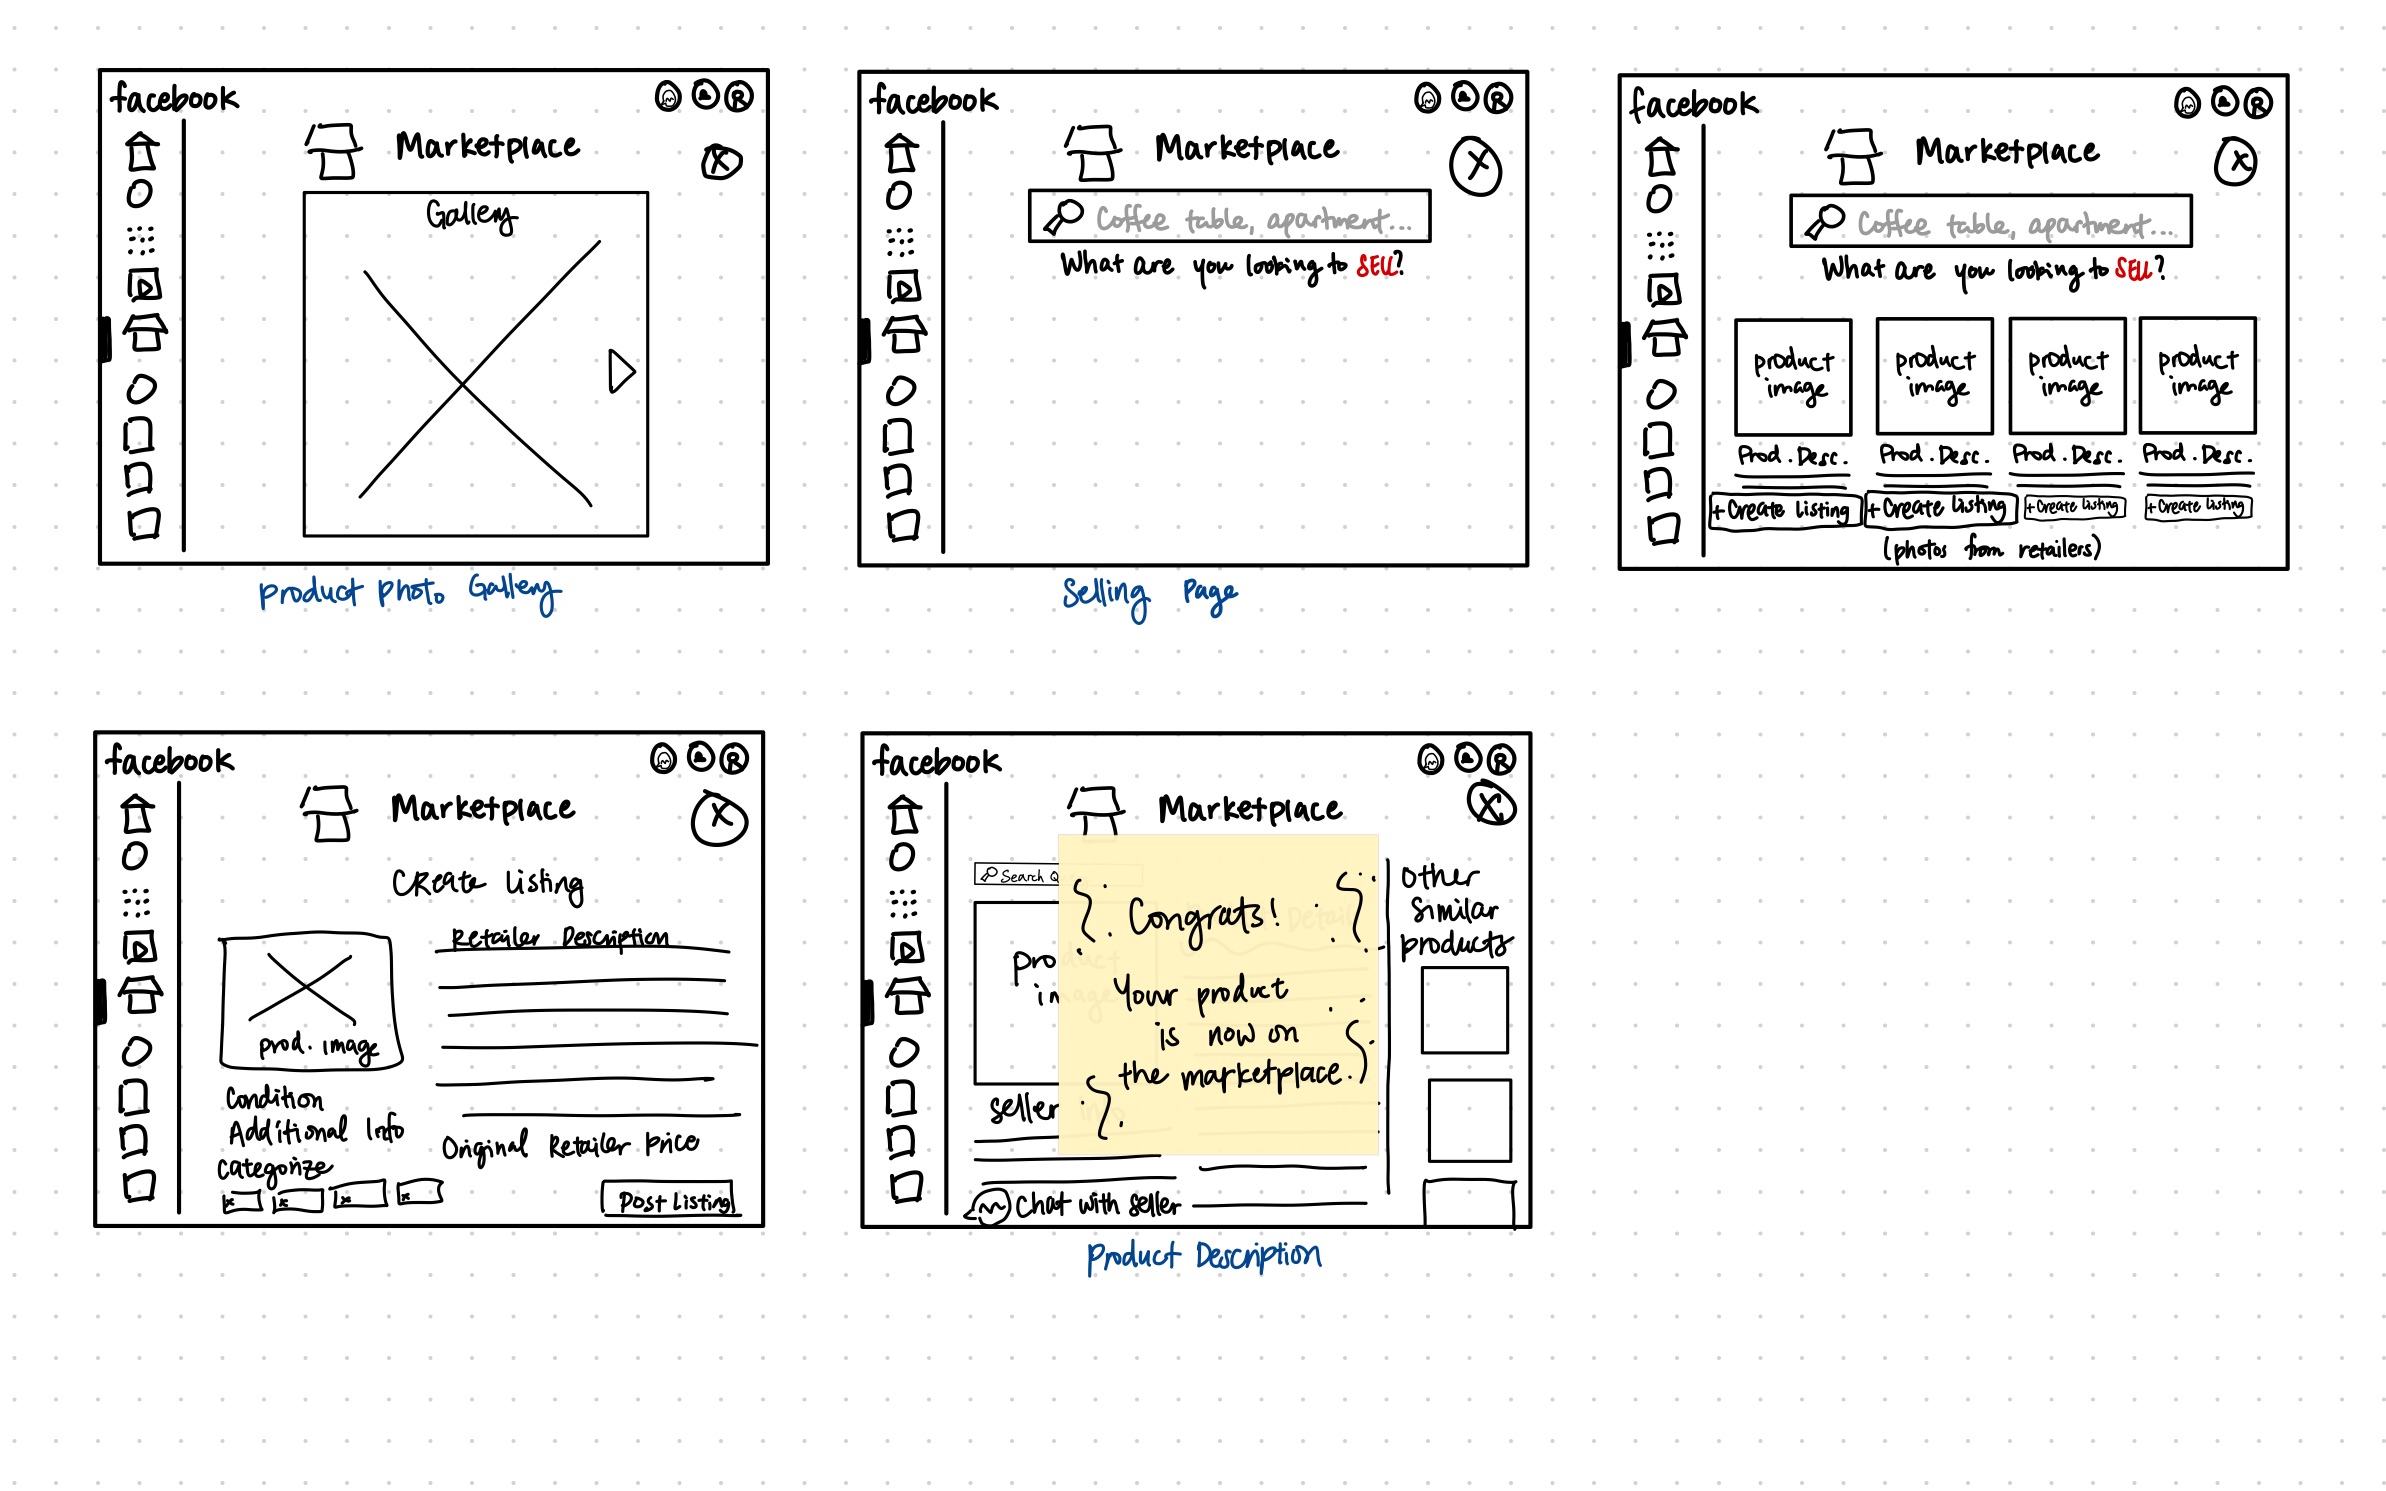 facebook
Marketplace
X
Gallery
Product Photo Gallery
facebook
Marketplace
X
Coffee table, apartment...
What are you looking to SELL?
Selling Page
facebook
Marketplace
X
Coffee table, apartment...
What are you looking to SELL?
product image
product image
product image
product image
Prod. Desc.
Prod. Desc.
Prod. Desc.
Prod. Desc.
+Create Listing
+Create Listing
+Create Listing
+Create Listing
(photos from retailers)
facebook
Marketplace
X
Create Listing
prod. image
Retailer Description
Condition
Additional Info
Categorize
Original Retailer Price
Post Listing
facebook
Marketplace
X
Search
Congrats!
Your product
is now on
the marketplace.
product
image
seller
Chat with seller
Other
Similar
products
Product Description